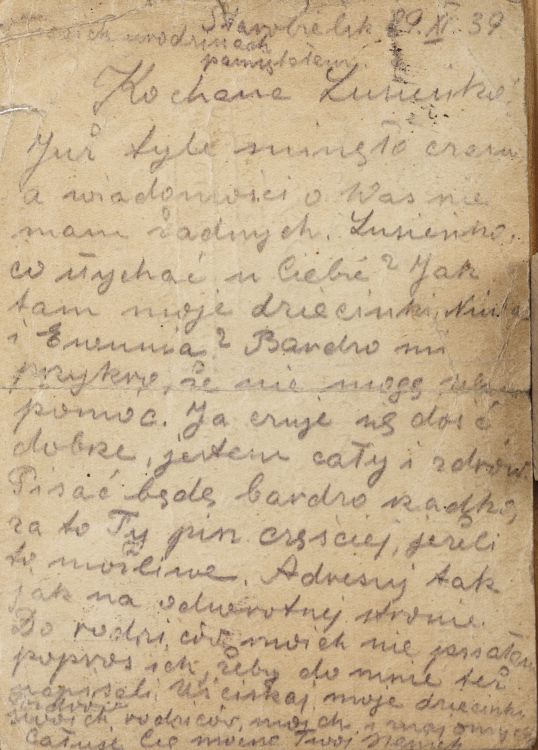 Starobielsk 29. XI. 39
Twoich urodzinach
pamiętałem.
Kochana Lusieńko!
Już tyle minęło czasu
a wiadomości o Was nie
mam żadnych. Lusieńko,
co słychać u Ciebie? Jak
tam moje dziecinki, Niusia
i Ewunia? Bardzo mi
przykro, że nie mogę Wam
pomóc. Ja czuję się dość
dobrze, jestem cały i zdrów.
Pisać będę bardzo rzadko,
za to Ty pisz częściej, jeżeli
to możliwe. Adresuj tak
jak na odwrotnej stronie.
Do rodziców moich nie pisałem
poproś ich, żeby do mnie też
napisali. Uściskaj moje dziecinki
swoich rodziców, moich i znajomych
Całuję Cię mocno Twój